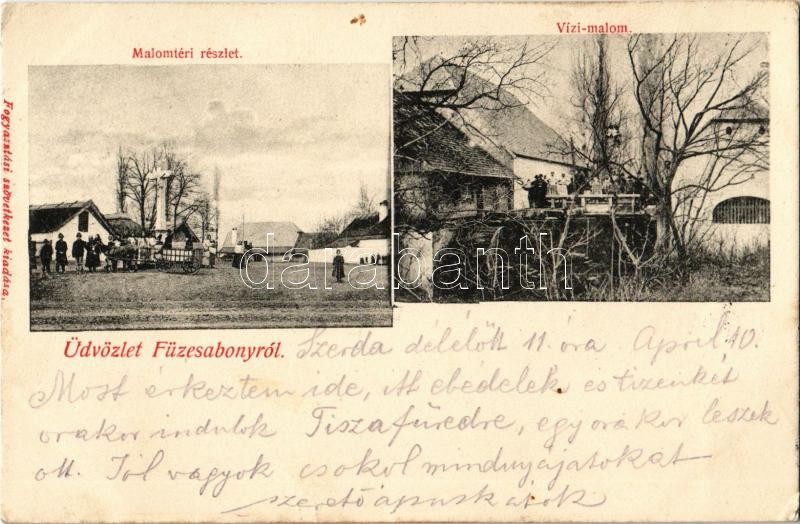 Malomtéri részlet.
Vízi-malom.
Fogyasztási szövetkezet kiadása.
darabanth
Üdvözlet Füzesabonyról.
Szerda délélőtt 11. óra April 10.
Most érkeztem ide, itt ebédelek és tizenkét
orakor indulok Tiszafüredre, egy orakor leszek
ott. Jól vagyok csokol mindnyájatokat
szerető apuskátok